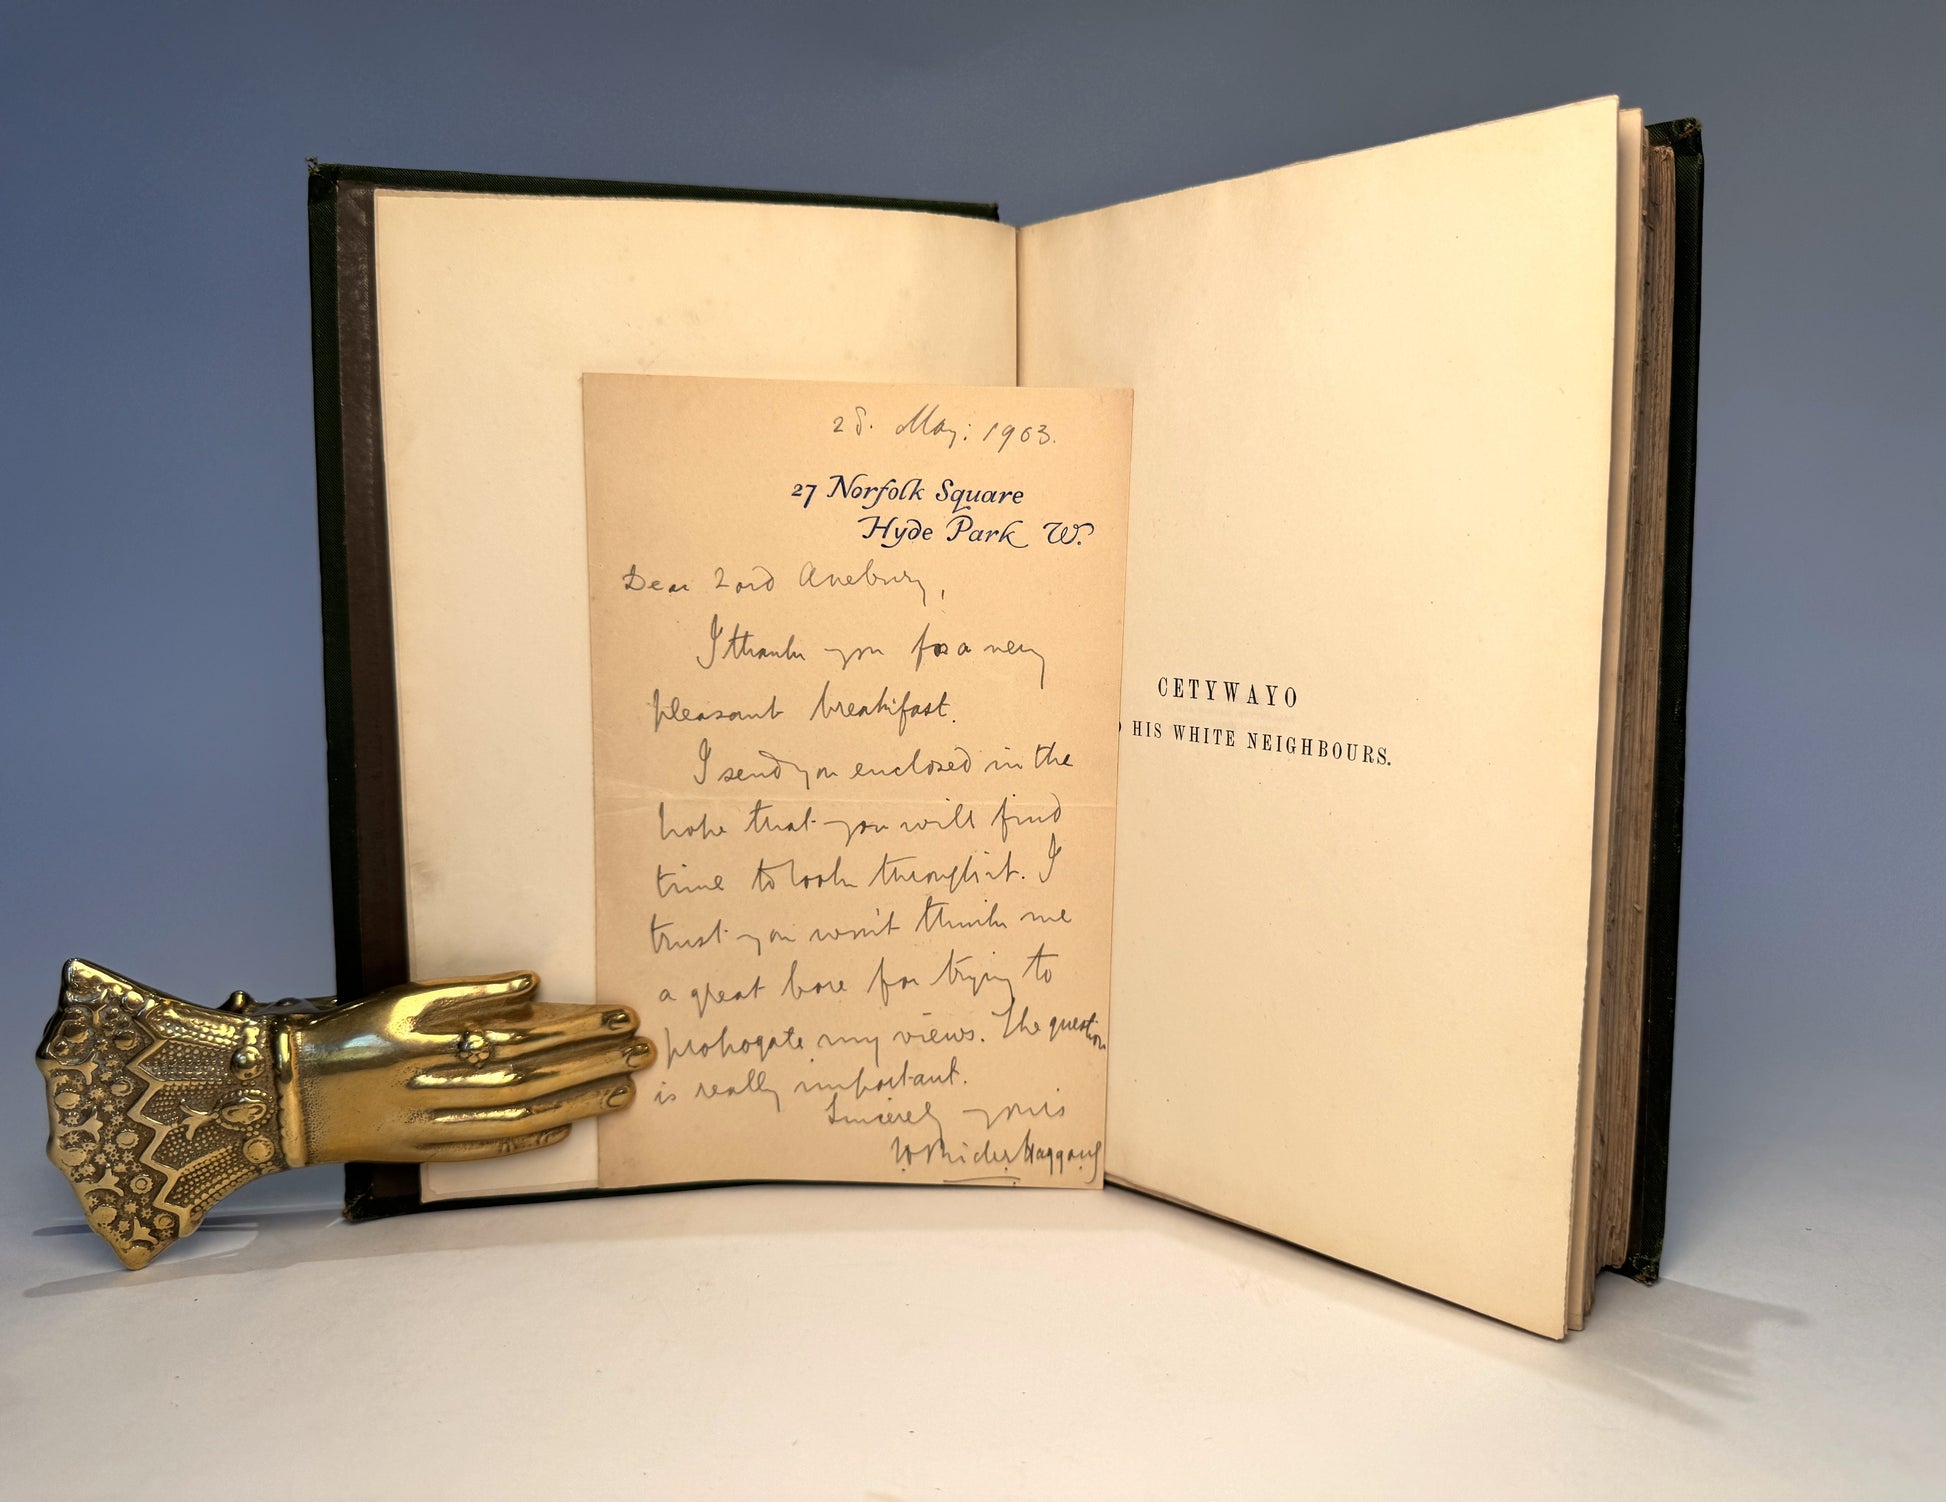 28. May: 1903.
27 Norfolk Square
Hyde Park W.
Dear Lord Avebury,
I thank you for a very
pleasant breakfast.
I send you enclosed in the
hope that you will find
time to look through it. I
trust you won't think me
a great bore for trying to
propogate my views. The question
is really important.
Sincerely yours
H Rider Haggard
CETYWAYO
HIS WHITE NEIGHBOURS.